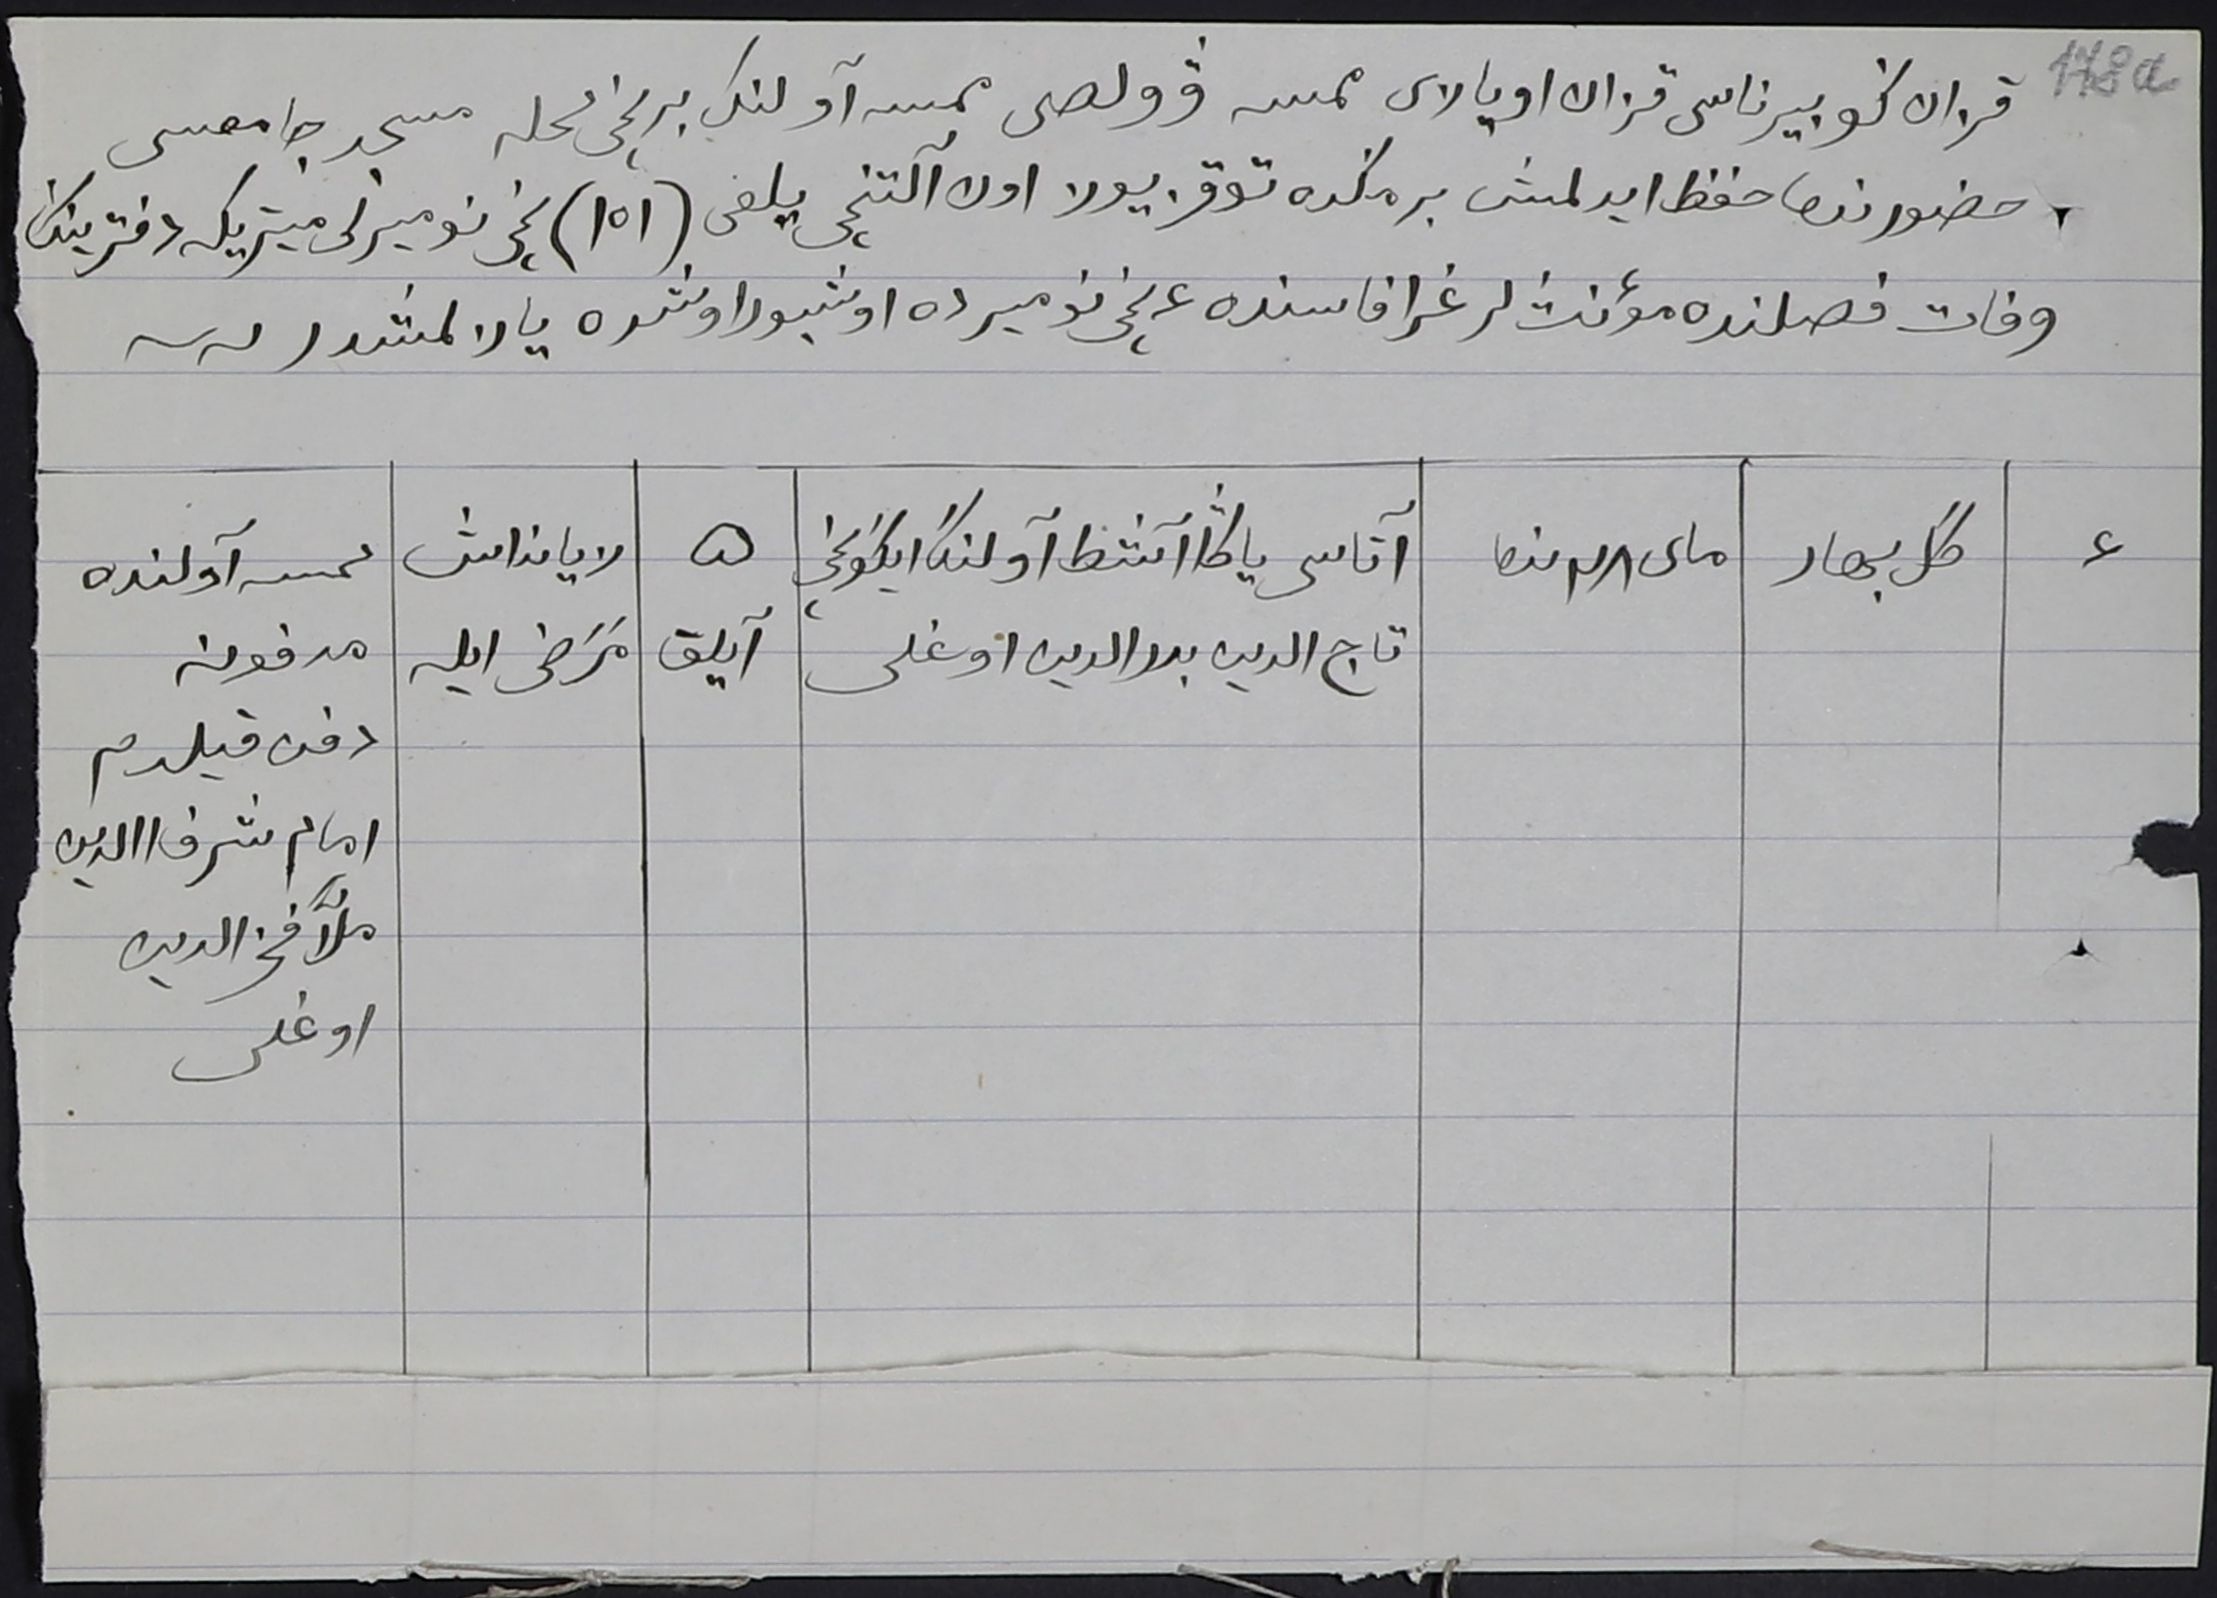 178а
قزان گوبیرناسی قزان اویازی ممسه ڤولصی ممسه آولنک برنچی محله مسجد جامعسی
حضورنده حفظ ایدلمش بر مڭده توقز یوز اون آلتنچی یلغی (١٥١) نچی نومیرلی میتریکه دفترینڭ
وفات فصلنده مؤنث لر غرافاسنده ٤ نچی نومیرده اوشبو راوشده یازلمشدر
٤
گل بهار
مای ٢٨ نده
آتاسی یاڭا آشط آولنڭ ایکونچی
تاج الدین بدرالدین اوغلی
٥
آیلق
مرضی ایله
ممسه آولنده
مدفونه
دفن قیلدم
امام شرف الدین
ملا فخر الدین
اوغلی